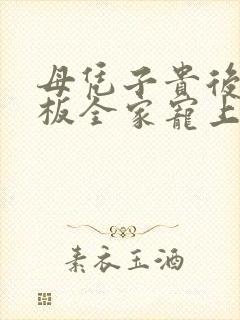 母凭子貴後
板全家寵上
素衣玉酒